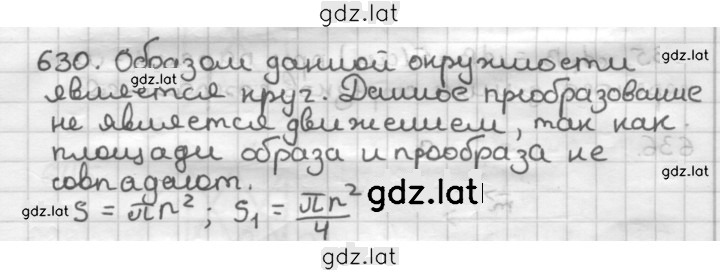 gdz.lat
630. Образом данной окружности
gdz.lat
gdz.lat
является круг. Данное преобразование
не является движением, так как
площади образа и прообраза не
gdz.lat
совпадают.
gdz.lat S = πr²; S₁ = πr²/4
gdz.lat
gdz.lat